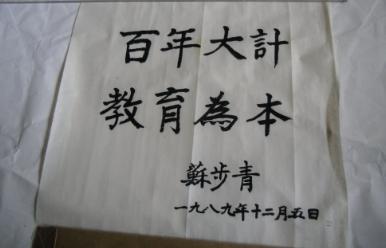 百年大計
教育為本
蘇步青
一九八九年十二月五日